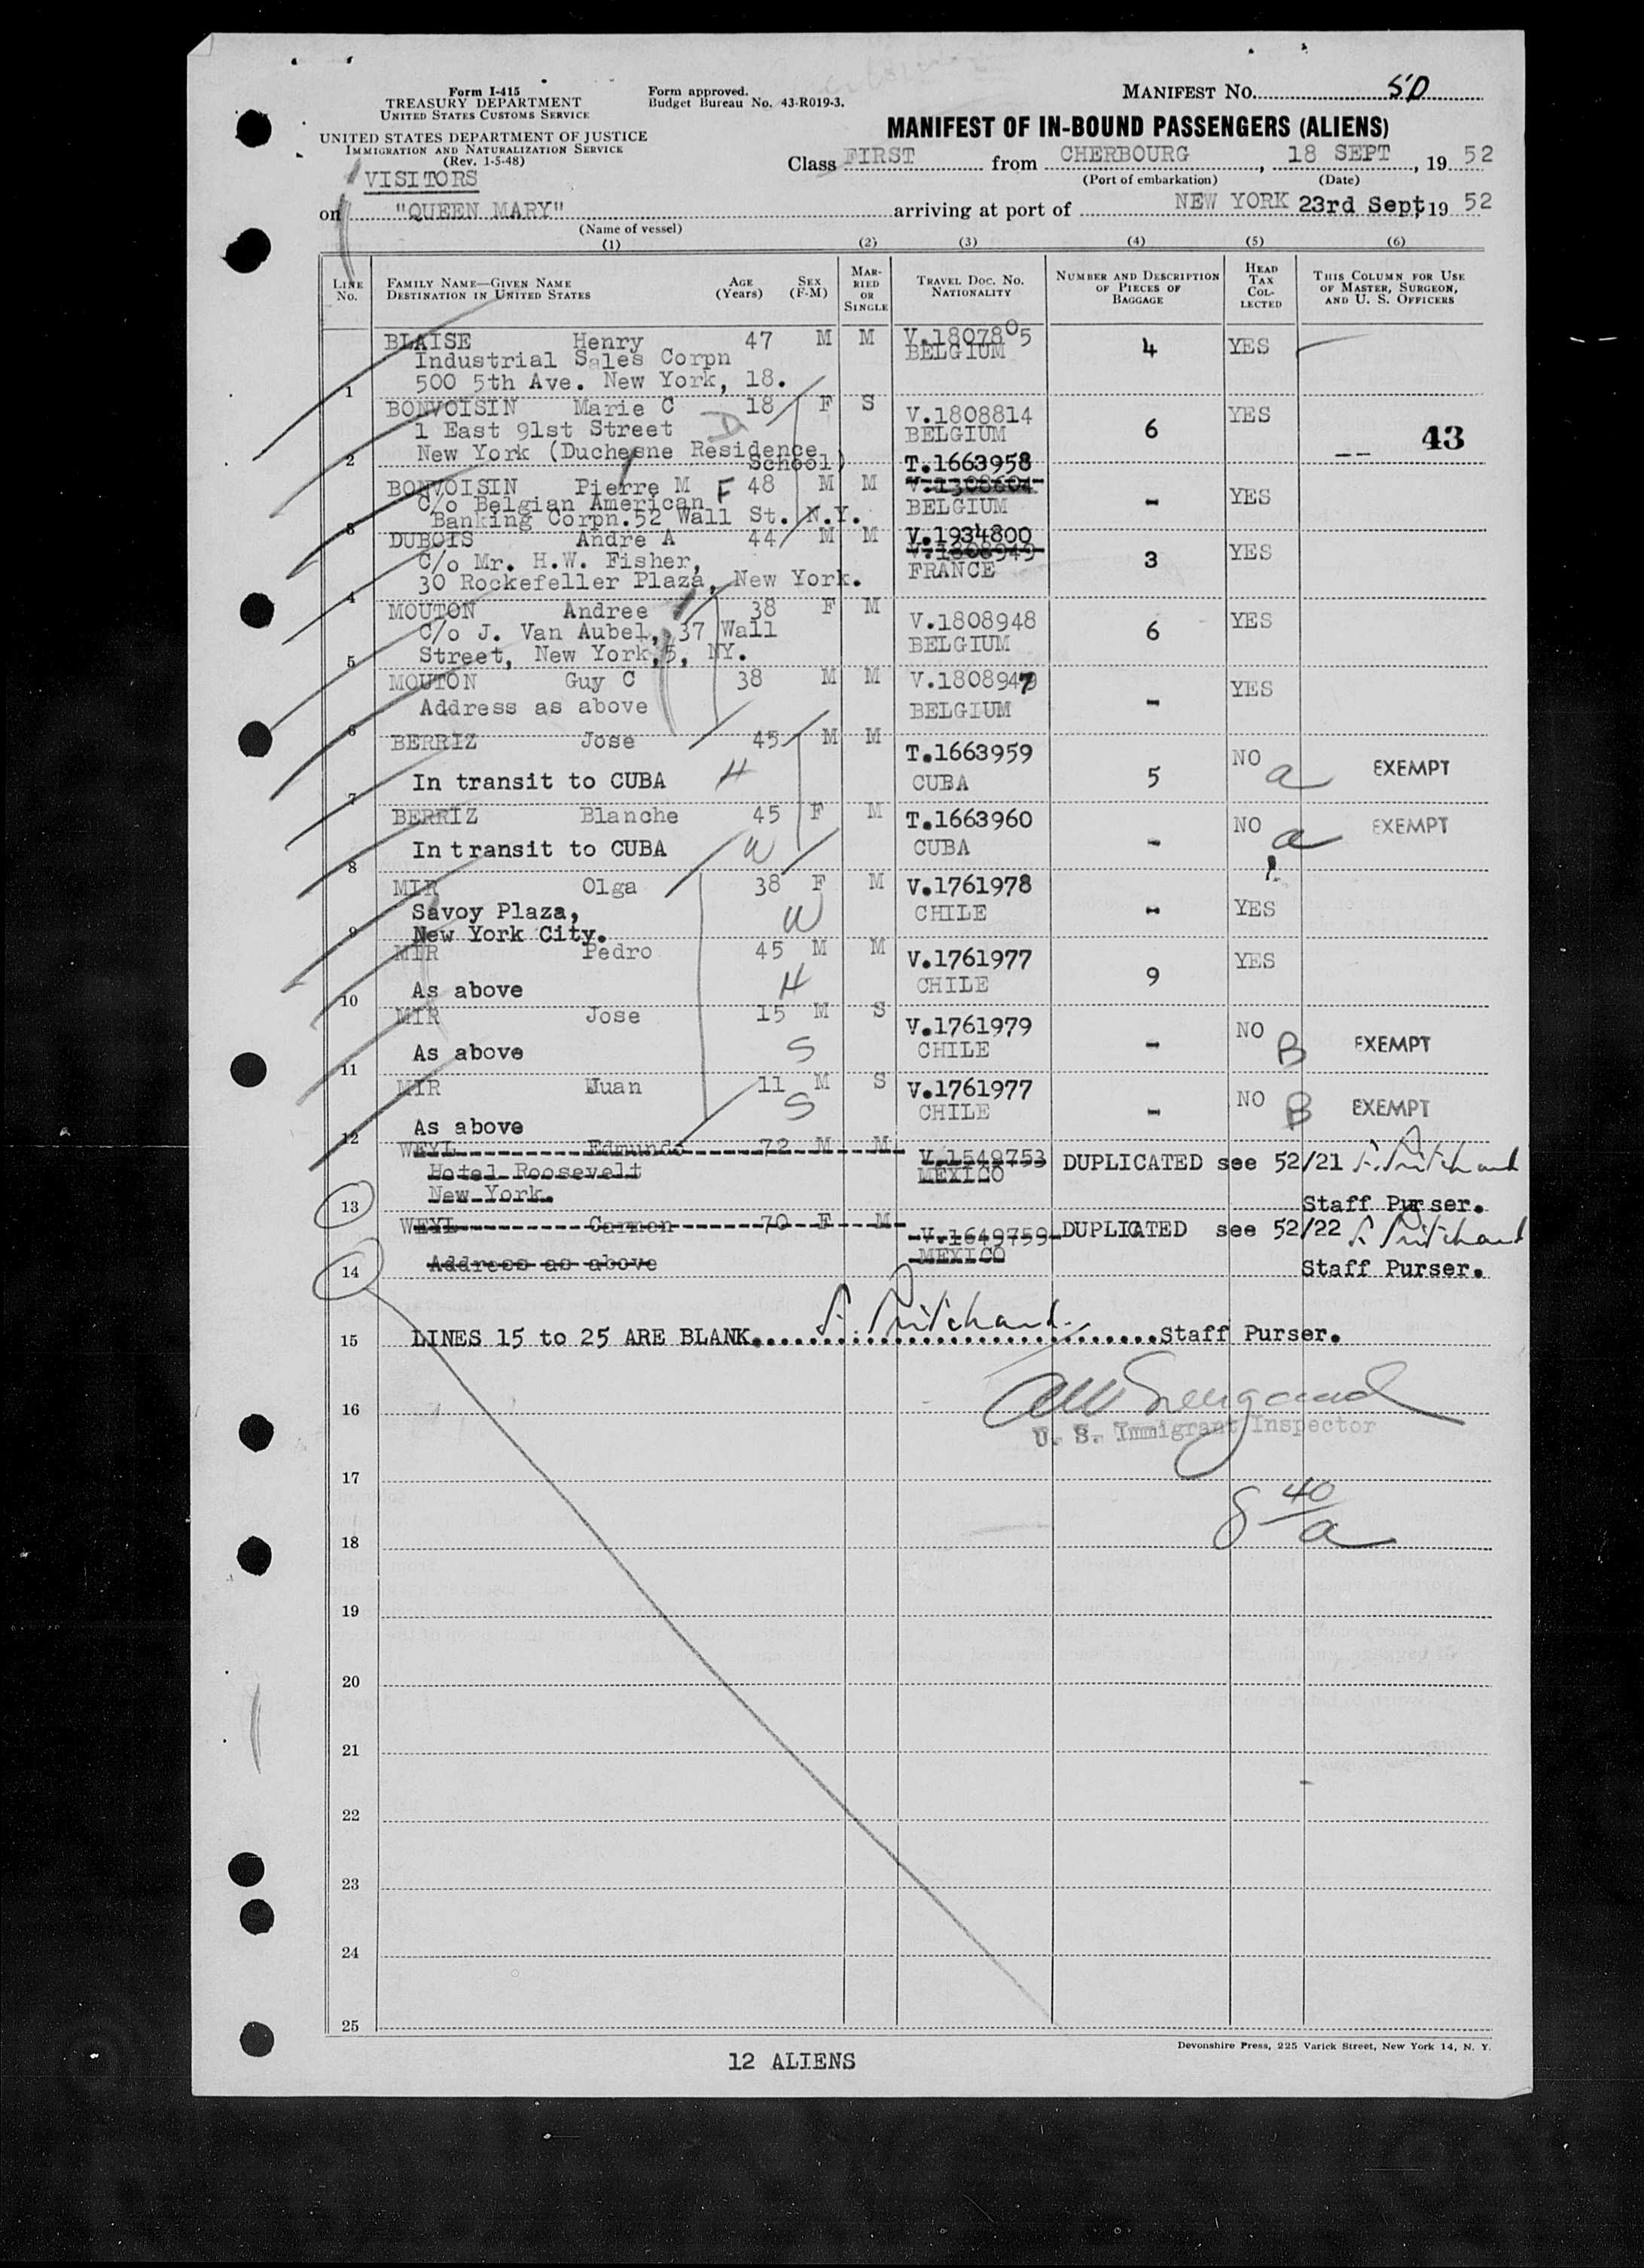 Form I-415
TREASURY DEPARTMENT
UNITED STATES CUSTOMS SERVICE
UNITED STATES DEPARTMENT OF JUSTICE
IMMIGRATION AND NATURALIZATION SERVICE
(Rev. 1-5-48)
Form approved.
Budget Bureau No. 43-R019-3.
MANIFEST NO. 50
MANIFEST OF IN-BOUND PASSENGERS (ALIENS)
Class FIRST from CHERBOURG, 18 SEPT, 19 52
(Port of embarkation) (Date)
VISITORS
on "QUEEN MARY" arriving at port of NEW YORK 23rd Sept, 19 52
(Name of vessel)
(1) (2) (3) (4) (5) (6)
LINE NO. FAMILY NAME—GIVEN NAME DESTINATION IN UNITED STATES AGE (Years) SEX (F-M) MARRIED OR SINGLE TRAVEL DOC. NO. NATIONALITY NUMBER AND DESCRIPTION OF PIECES OF BAGGAGE HEAD TAX COLLECTED THIS COLUMN FOR USE OF MASTER, SURGEON, AND U. S. OFFICERS
BLAISE Henry 47 M M V.1807805 4 YES
Industrial Sales Corpn BELGIUM
1 500 5th Ave. New York, 18.
BONVOISIN Marie C 18 F S V.1808814 6 YES
1 East 91st Street D BELGIUM 43
2 New York (Duchesne Residence School)
BONVOISIN Pierre M F 48 M M T.1663958 - YES
C/o Belgian American V.1308604
3 Banking Corpn. 52 Wall St. N.Y. BELGIUM
DUBOIS Andre A 44 M M V.1934800 3 YES
C/o Mr. H.W. Fisher, V.1808949
4 30 Rockefeller Plaza, New York. FRANCE
MOUTON Andree 38 F M V.1808948 6 YES
C/o J. Van Aubel, 37 Wall BELGIUM
5 Street, New York, 5, NY.
MOUTON Guy C 38 M M V.1808947 - YES
6 Address as above BELGIUM
BERRIZ Jose 45 M M T.1663959 5 NO a EXEMPT
7 In transit to CUBA H CUBA
BERRIZ Blanche 45 F M T.1663960 - NO a EXEMPT
8 In transit to CUBA W CUBA
MIR Olga 38 F M V.1761978 - YES
Savoy Plaza, W CHILE
9 New York City.
MIR Pedro 45 M M V.1761977 9 YES
10 As above H CHILE
MIR Jose 15 M S V.1761979 - NO B EXEMPT
11 As above S CHILE
MIR Juan 11 M S V.1761977 - NO B EXEMPT
12 As above S CHILE
WEYL Edmundo 72 M M V.1549753 DUPLICATED see 52/21 S. Pritchard
Hotel Roosevelt MEXICO
13 New York. Staff Purser.
WEYL Carmen 70 F M V.1649759 DUPLICATED see 52/22 S. Pritchard
MEXICO
14 Address as above Staff Purser.
15 LINES 15 to 25 ARE BLANK. S. Pritchard Staff Purser.
16
U. S. Immigrant Inspector
17
8 40/a
18
19
20
21
22
23
24
25
Devonshire Press, 225 Varick Street, New York 14, N. Y.
12 ALIENS